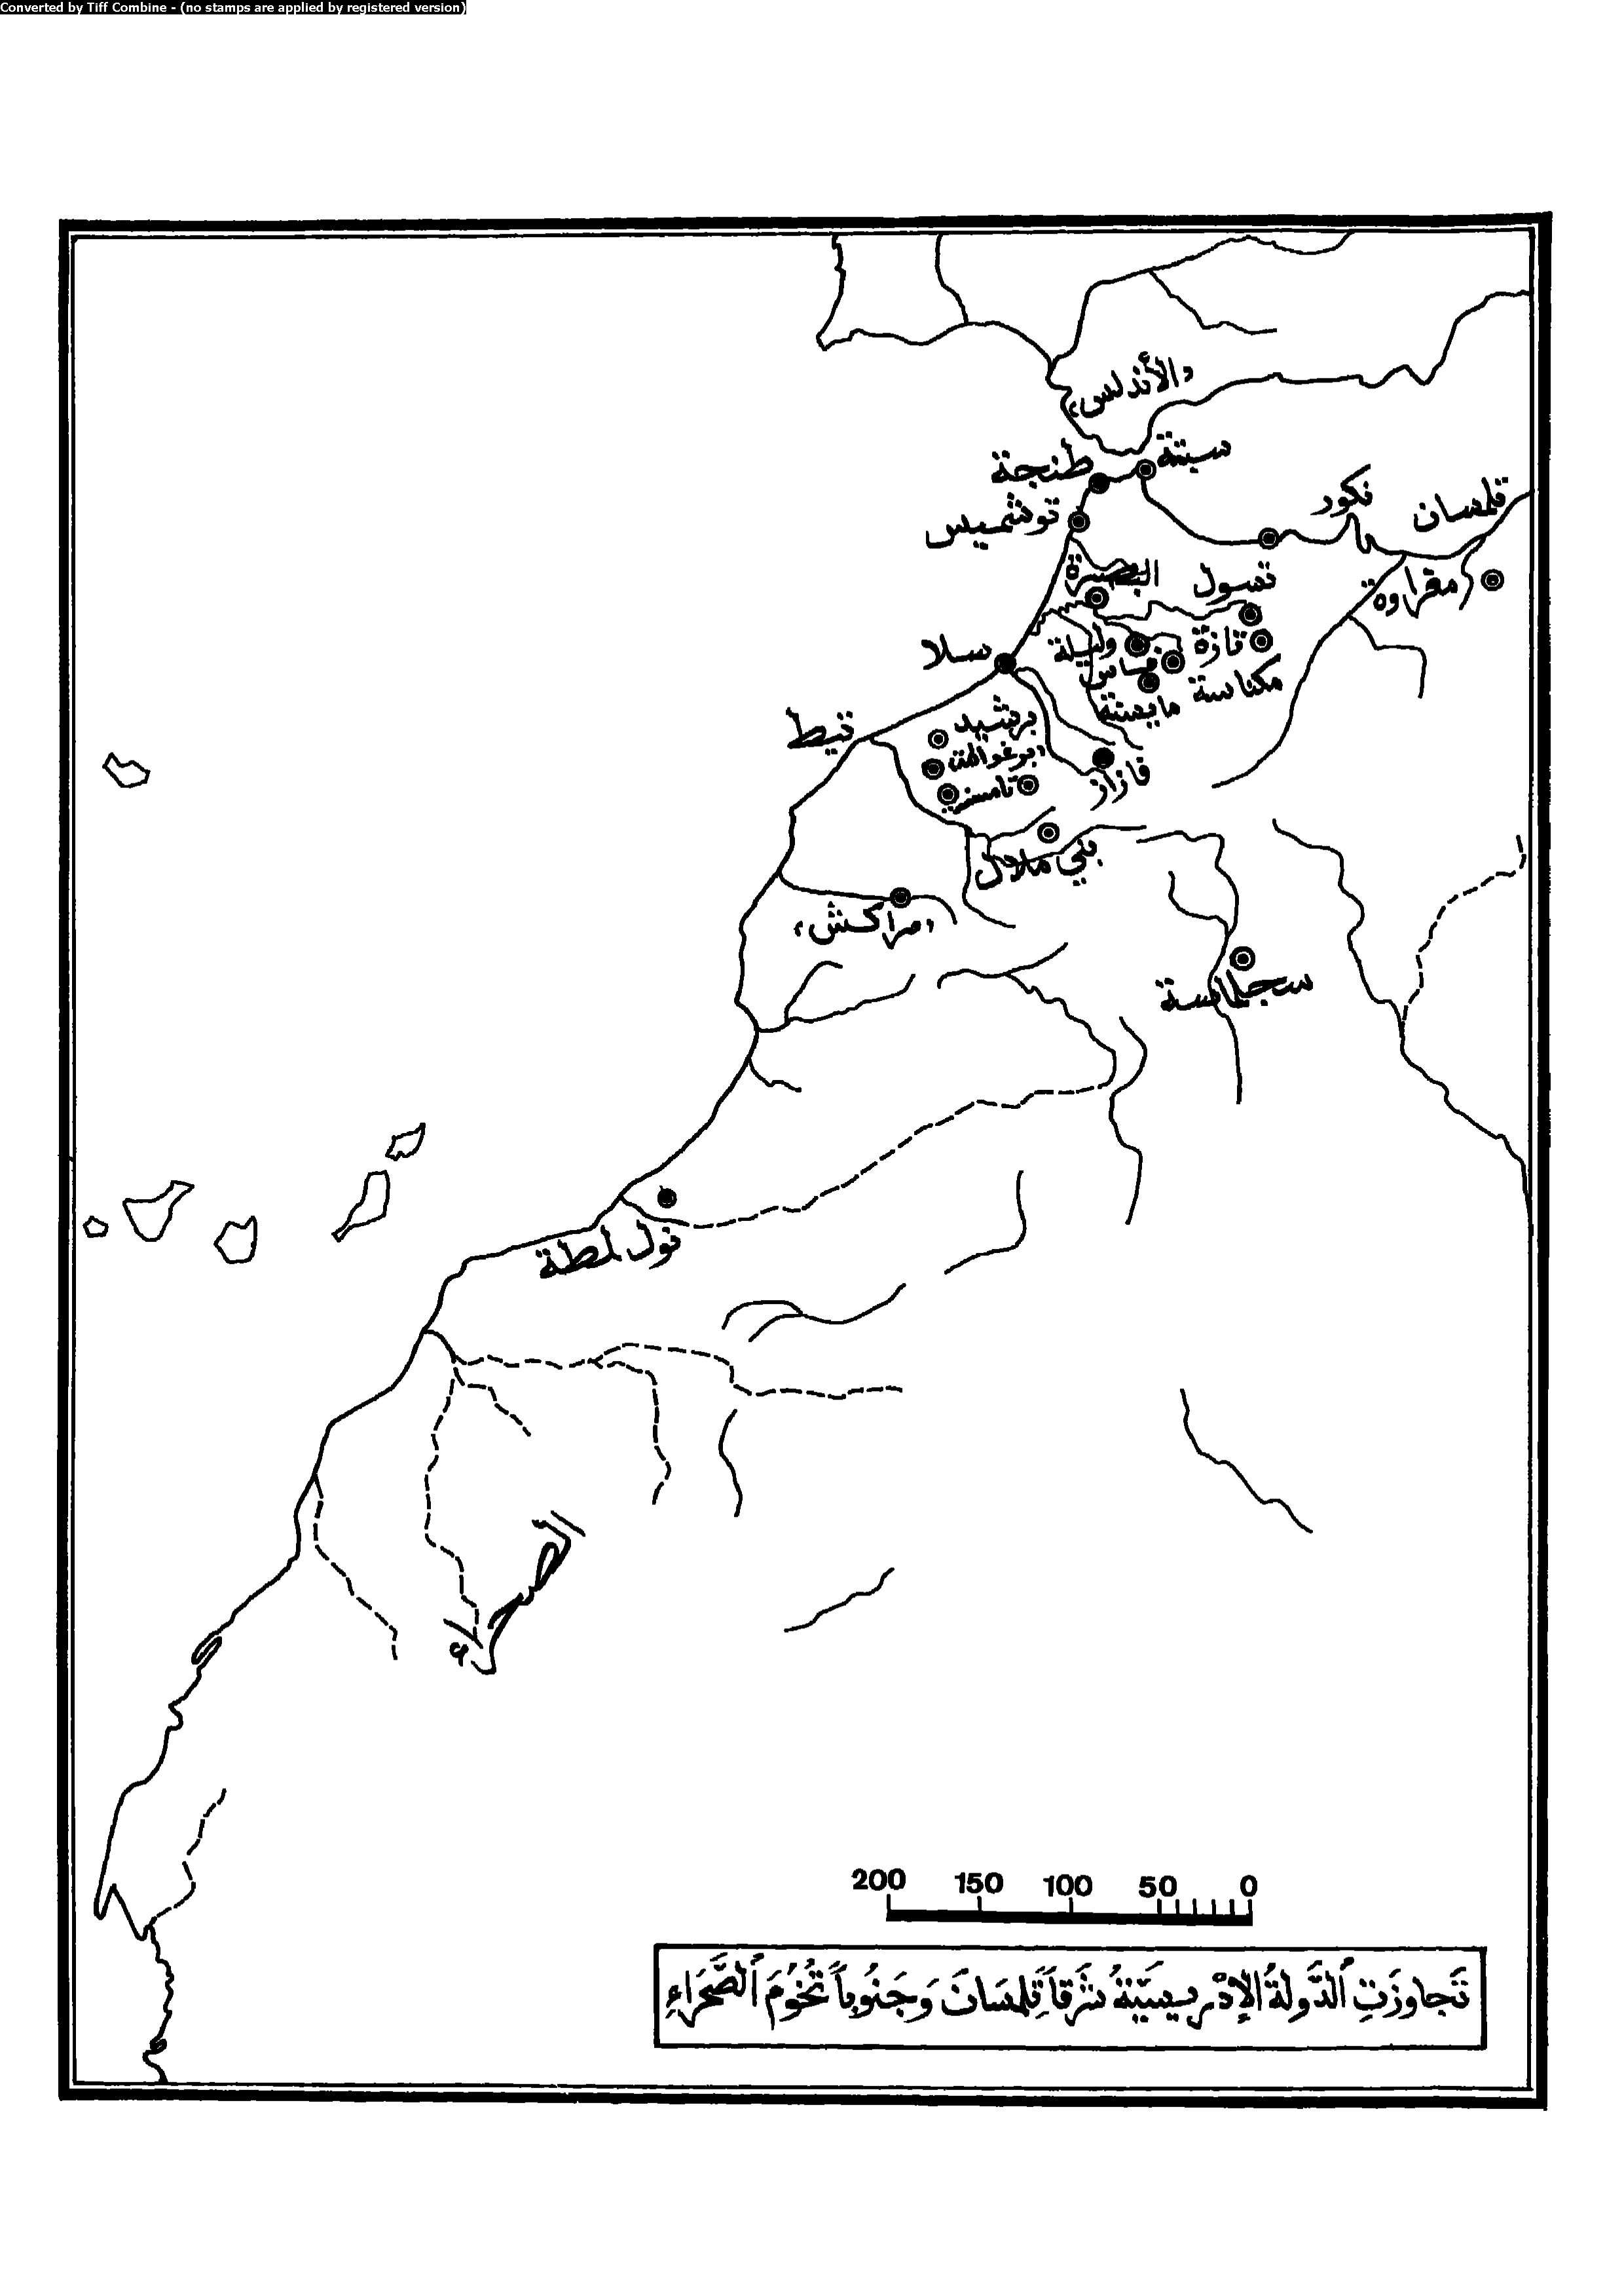 Converted by Tiff Combine - (no stamps are applied by registered version)
«الأندلس»
سبتة
طنجة
نكور
تلمسان
توشميس
البصرة
تسول
مغراوة
سلا
وليلة
تازة
فاس
مكناسة
مايستة
تيط
برشيد
«بوغواطة»
تامسنى
فازاز
بني ملال
«مراكش»
سجلماسة
نول لمطة
الصحراء
200 150 100 50 0
تَجاوزَتِ ٱلدَّولةُ الإدْريسيَّةُ شَرْقاً تِلِمسَانَ وَجَنُوباً تُخُومَ ٱلصَّحْرَاءِ